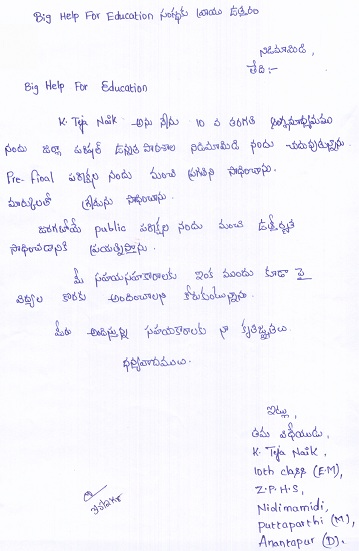 Big Help For Education సంస్థకు వ్రాయు ఉత్తరం
నిడిమామిడి,
తేది:-
Big Help For Education
K. Teja Naik అను నేను 10 వ తరగతి ఆంగ్లమాధ్యమము
నందు జిల్లా పరిషత్ ఉన్నత పాఠశాల నిడిమామిడి నందు చదువుతున్నాను.
Pre-final పరీక్షల నందు మంచి ప్రగతిని సాధించాను.
మార్కులతో గ్రేడును సాధించాను.
జరగబోయే public పరీక్షల నందు మంచి ఉత్తీర్ణత
సాధించడానికి ప్రయత్నిస్తాను.
మీ సహాయసహకారాలకు ఇంక ముందు కూడా పై
విద్యల కొరకు అందించాలని కోరుకుంటున్నాను.
మీరు అందిస్తున్న సహాయకారాలకు నా కృతజ్ఞతలు.
ధన్యవాదములు.
ఇట్లు,
తమ విధేయుడు,
K. Teja Naik,
10th class (E.M),
Z.P.H.S,
Nidimamidi,
Puttaparthi (M),
Anantapur (D).